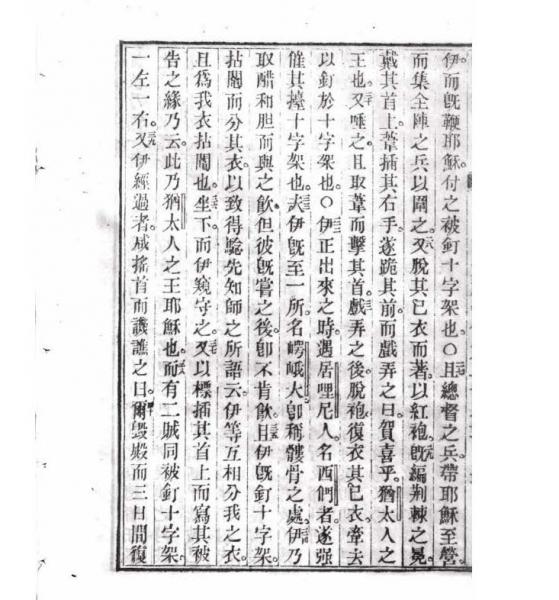 伊而旣鞭耶穌付之被釘十字架也。○且總督之兵帶耶穌至營。
而集全陣之兵以鬭之。又脫其己衣而著以紅袍。旣編荆棘之冕。
戴其首上葦插其右手。遂跪其前而戲弄之曰賀喜乎。猶太人之
王也。又唾之且取葦而擊其首。戲弄之後。脫袍復衣其己衣牽去
以釘於十字架也。○伊正出來之時。遇居哩尼人名西們者。遂强
催其擡十字架也。夫伊旣至一所名崿峨大卽稱髏骨之處。伊乃
取醋和胆而與之飲但彼旣嘗之後。卽不肯飲。且伊旣釘十字架。
拈鬮而分其衣。以致得騐先知師之所語云。伊等互相分我之衣。
且爲我衣拈鬮也。坐下。而伊窺守之。又以標插其首上而寫其被
告之緣乃云此乃猶太人之王耶穌也。而有二賊同被釘十字架。
一左一右。又伊經過者。咸搖首而譏譙之曰。爾毀殿而三日間復